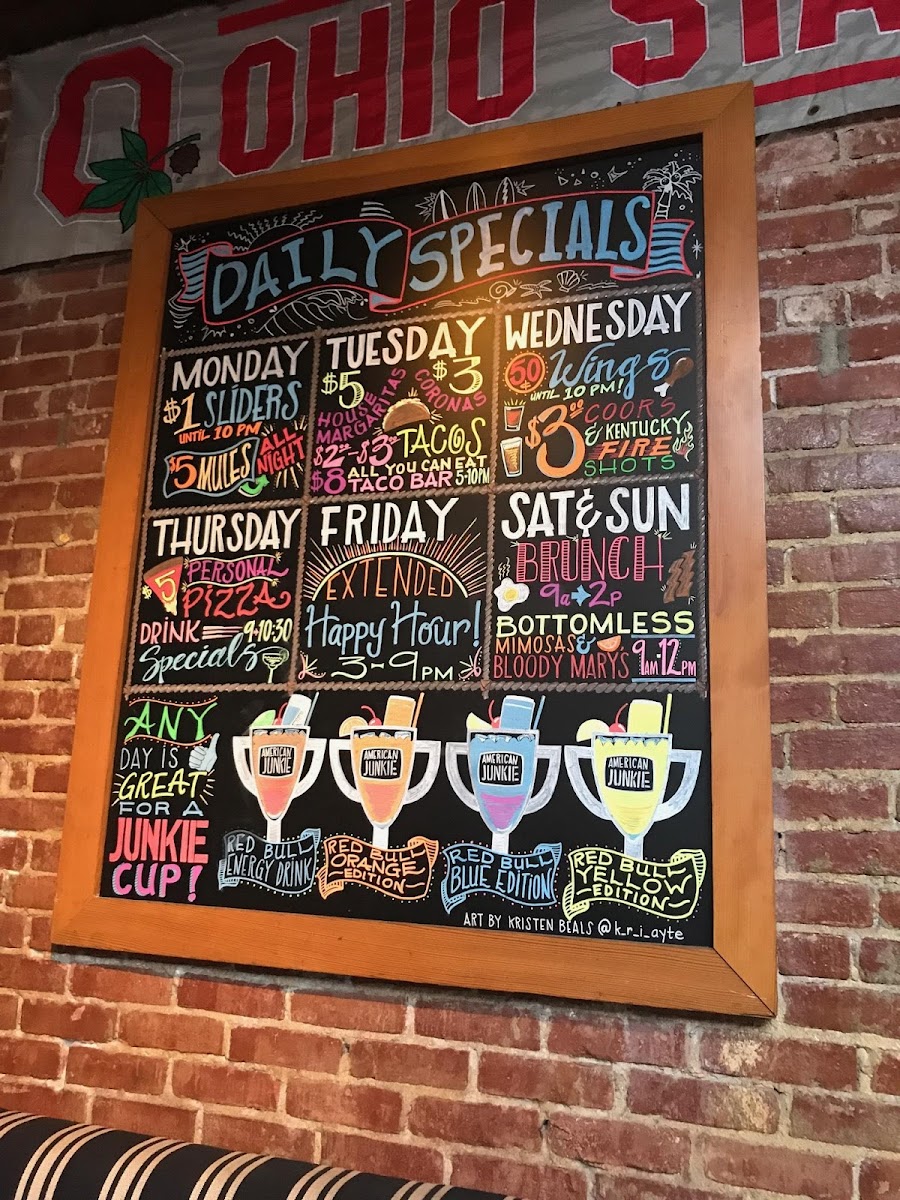 O OHIO STA
DAILY SPECIALS
MONDAY
$1 SLIDERS
UNTIL 10 PM
$5 MULES ALL NIGHT
TUESDAY
$5 HOUSE MARGARITAS
$3 CORONAS
$2⁰⁰-$3⁰⁰ TACOS
$8 ALL YOU CAN EAT
TACO BAR 5-10PM
WEDNESDAY
50¢ Wings
UNTIL 10 PM!
$3⁰⁰ COORS
& KENTUCKY
FIRE
SHOTS
THURSDAY
$5 PERSONAL
PIZZA
DRINK 9-10:30
Specials
FRIDAY
EXTENDED
Happy Hour!
3-9 PM
SAT & SUN
BRUNCH
9a 2p
BOTTOMLESS
MIMOSAS &
BLOODY MARY'S 9AM-12PM
ANY
DAY IS
GREAT
FOR A
JUNKIE
CUP!
AMERICAN JUNKIE
RED BULL
ENERGY DRINK
AMERICAN JUNKIE
RED BULL
ORANGE
EDITION
AMERICAN JUNKIE
RED BULL
BLUE EDITION
AMERICAN JUNKIE
RED BULL
YELLOW
EDITION
ART BY KRISTEN BEALS @k_r_i_ayte